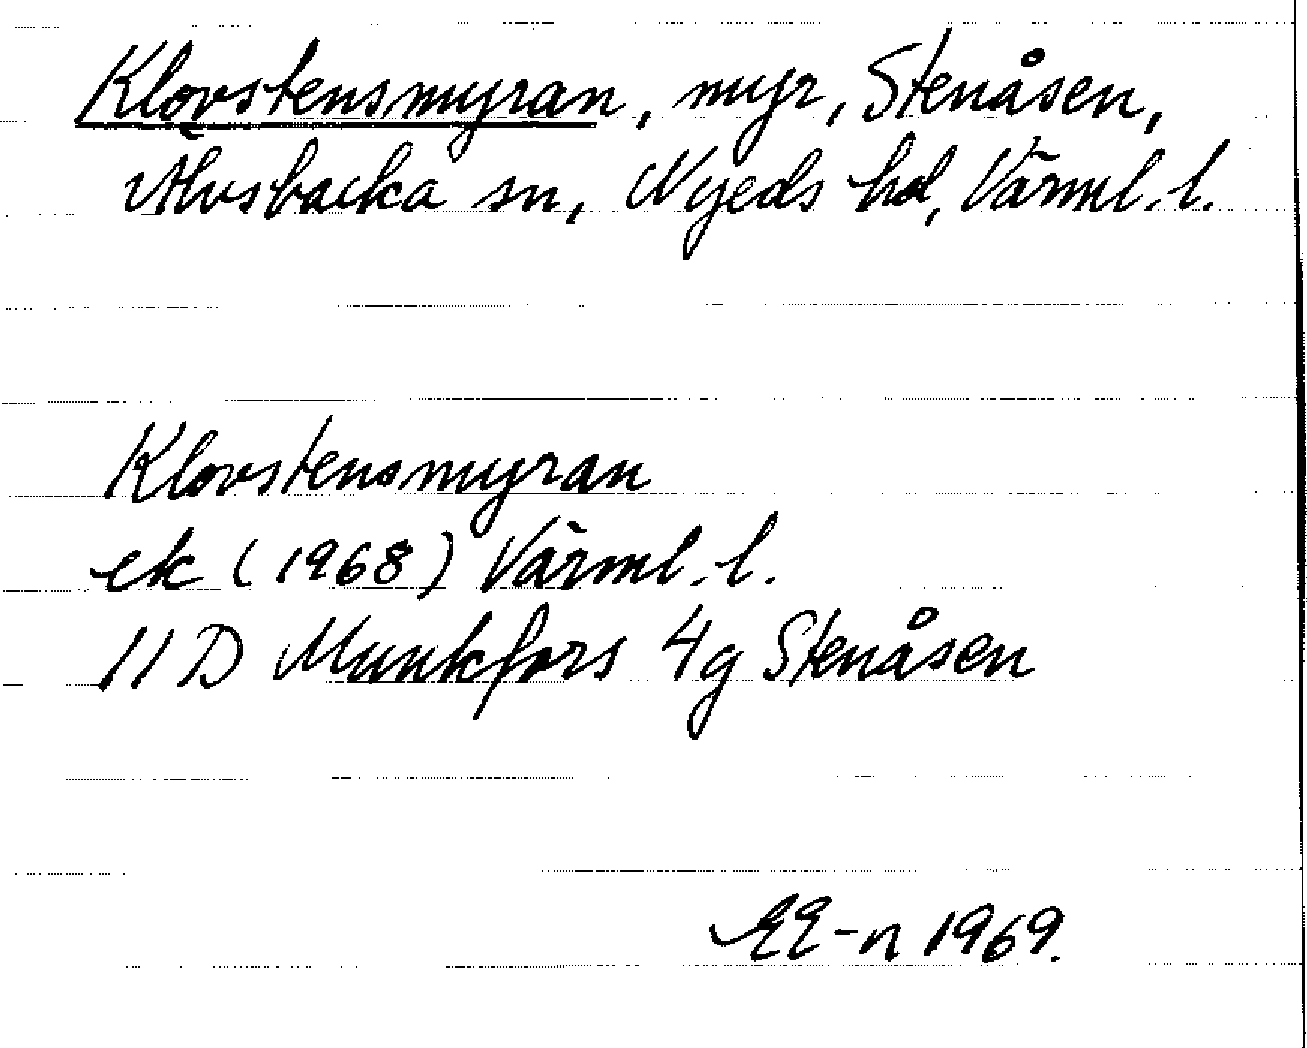 Klovstensmyran, myr, Stenåsen,
Älvsbacka sn, Nyeds hd, Värml. l.
Klovstensmyran
ek (1968) Värml. l.
11 D Munkfors 4g Stenåsen
EE-n 1969.